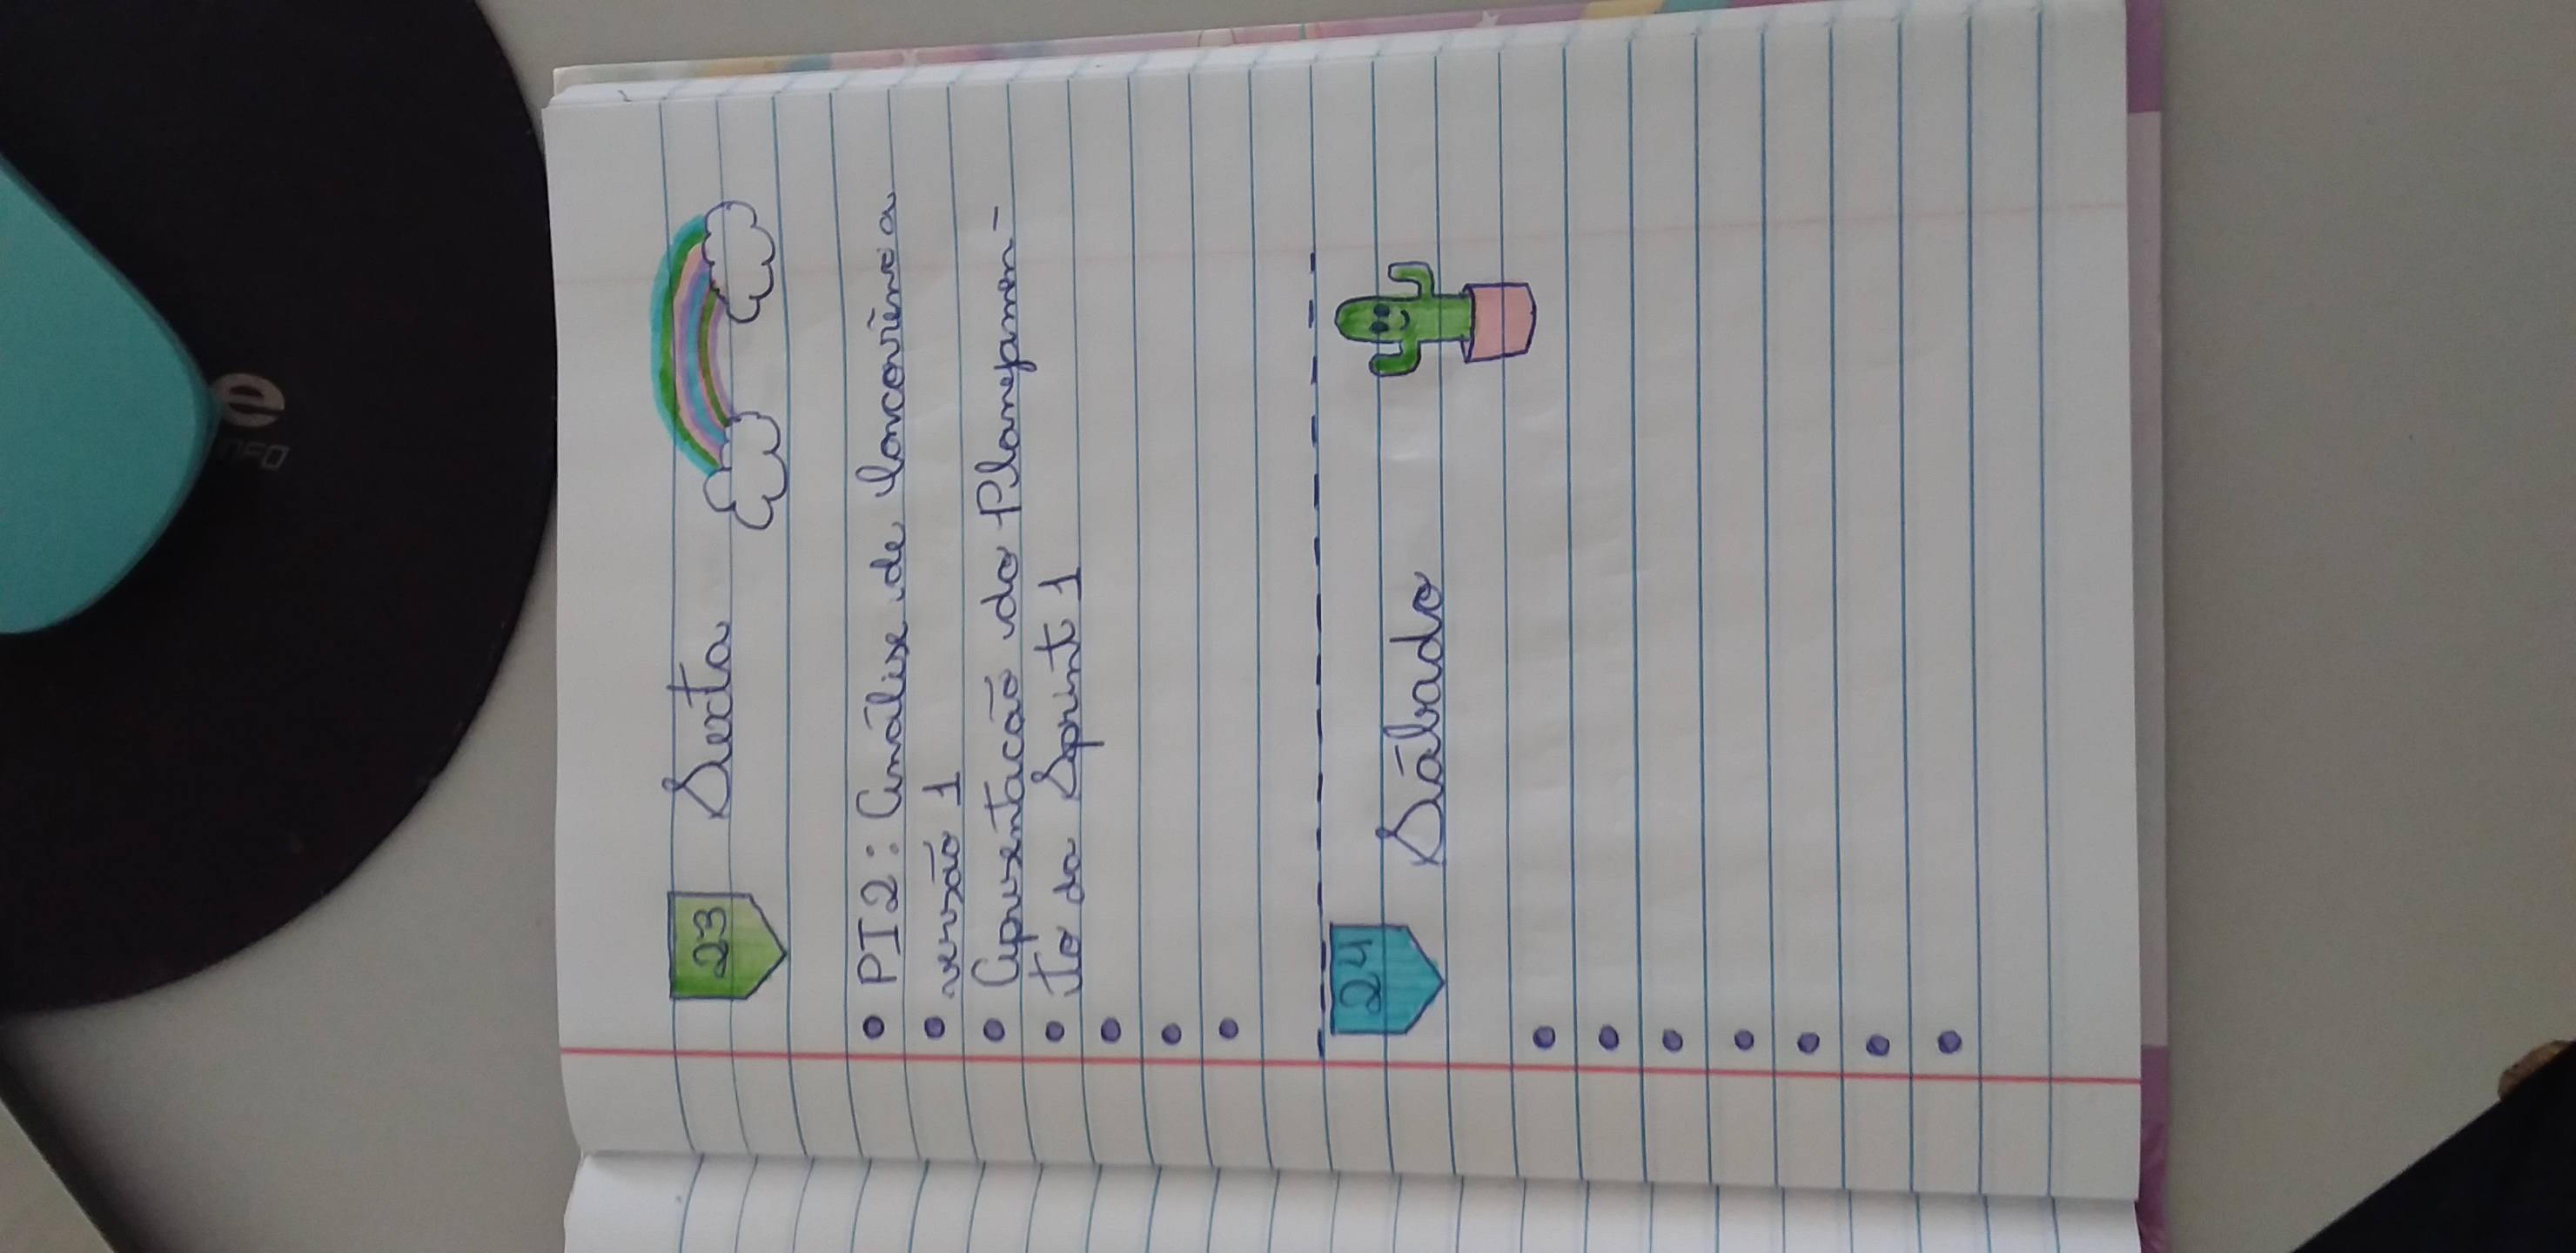 e
NFO
23 Sexta
• PI2: Análise de Concorrência
• versão 1
• Apresentacão do Planejamen-
• to da Sprint 1
•
•
•
24
Sábado
•
•
•
•
•
•
•